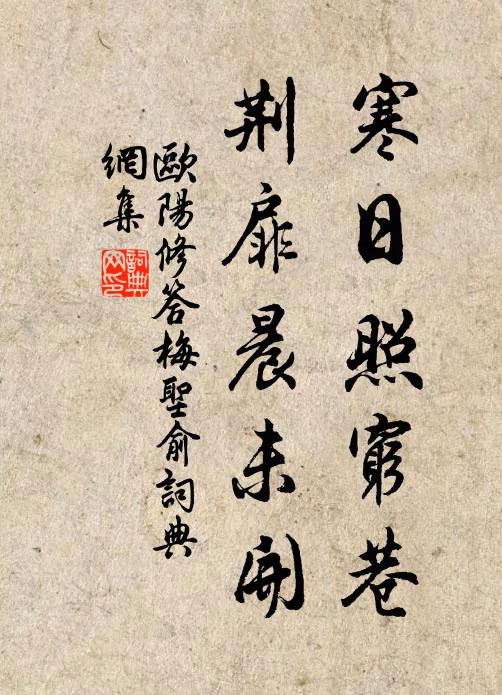 寒日照窮巷
荆扉晨未開
歐陽修答梅聖俞詞典
網集
詞典
网印